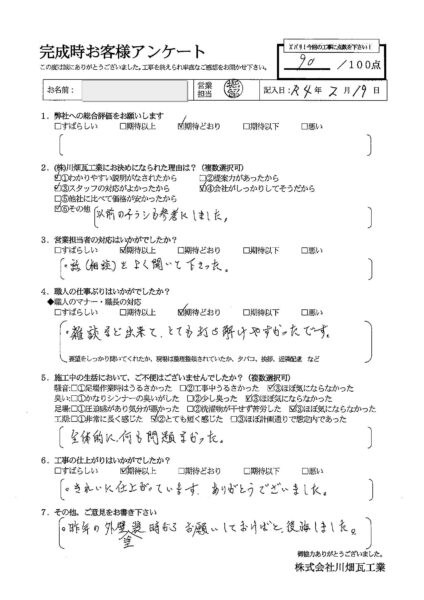 完成時お客様アンケート
この度は誠にありがとうございました。工事を終えられ率直なご感想をお聞かせ下さい。
ズバリ!今回の工事に点数を下さい!
90/100点
お名前:
営業担当
記入日:R4年2月19日
1．弊社への総合評価をお願いします
□すばらしい □期待以上 ☑期待どおり □期待以下 □悪い
2．(株)川畑瓦工業にお決めになられた理由は?（複数選択可）
☑①わかりやすい説明がなされたから □②提案力があったから
☑③スタッフの対応がよかったから ☑④会社がしっかりしてそうだから
□⑤他社に比べて価格が安かったから
☑⑥その他 以前のチラシも参考にしました。
3．営業担当者の対応はいかがでしたか?
□すばらしい ☑期待以上 □期待どおり □期待以下 □悪い
・話(相談)をよく聞いて下さった。
4．職人の仕事ぶりはいかがでしたか?
◆職人のマナー・職長の対応
□すばらしい □期待以上 ☑期待どおり □期待以下 □悪い
・雑談など出来て、とても打ち解けやすかったです。
要望をしっかり聞いてくれたか、現場は整理整頓されていたか、タバコ、挨拶、近隣配慮 など
5．施工中の生活において、ご不便はございませんでしたか?（複数選択可）
騒音:□①足場作業時はうるさかった □②工事中うるさかった ☑③ほぼ気にならなかった
臭い:□①かなりシンナーの臭いがした □②少し臭った ☑③ほぼ気にならなかった
足場:□①圧迫感があり気分が悪かった □②洗濯物が干せず苦労した ☑③ほぼ気にならなかった
工期:□①非常に長く感じた ☑②とても短く感じた □③ほぼ計画通りで想定内であった
全体的に何も問題なかった。
6．工事の仕上がりはいかがでしたか?
□すばらしい ☑期待以上 □期待どおり □期待以下 □悪い
・きれいに仕上がっています。ありがとうございました。
7．その他、ご意見をお書き下さい
・昨年の外壁塗装時からお願いしておけばと、後悔しました。
御協力ありがとうございました。
株式会社川畑瓦工業